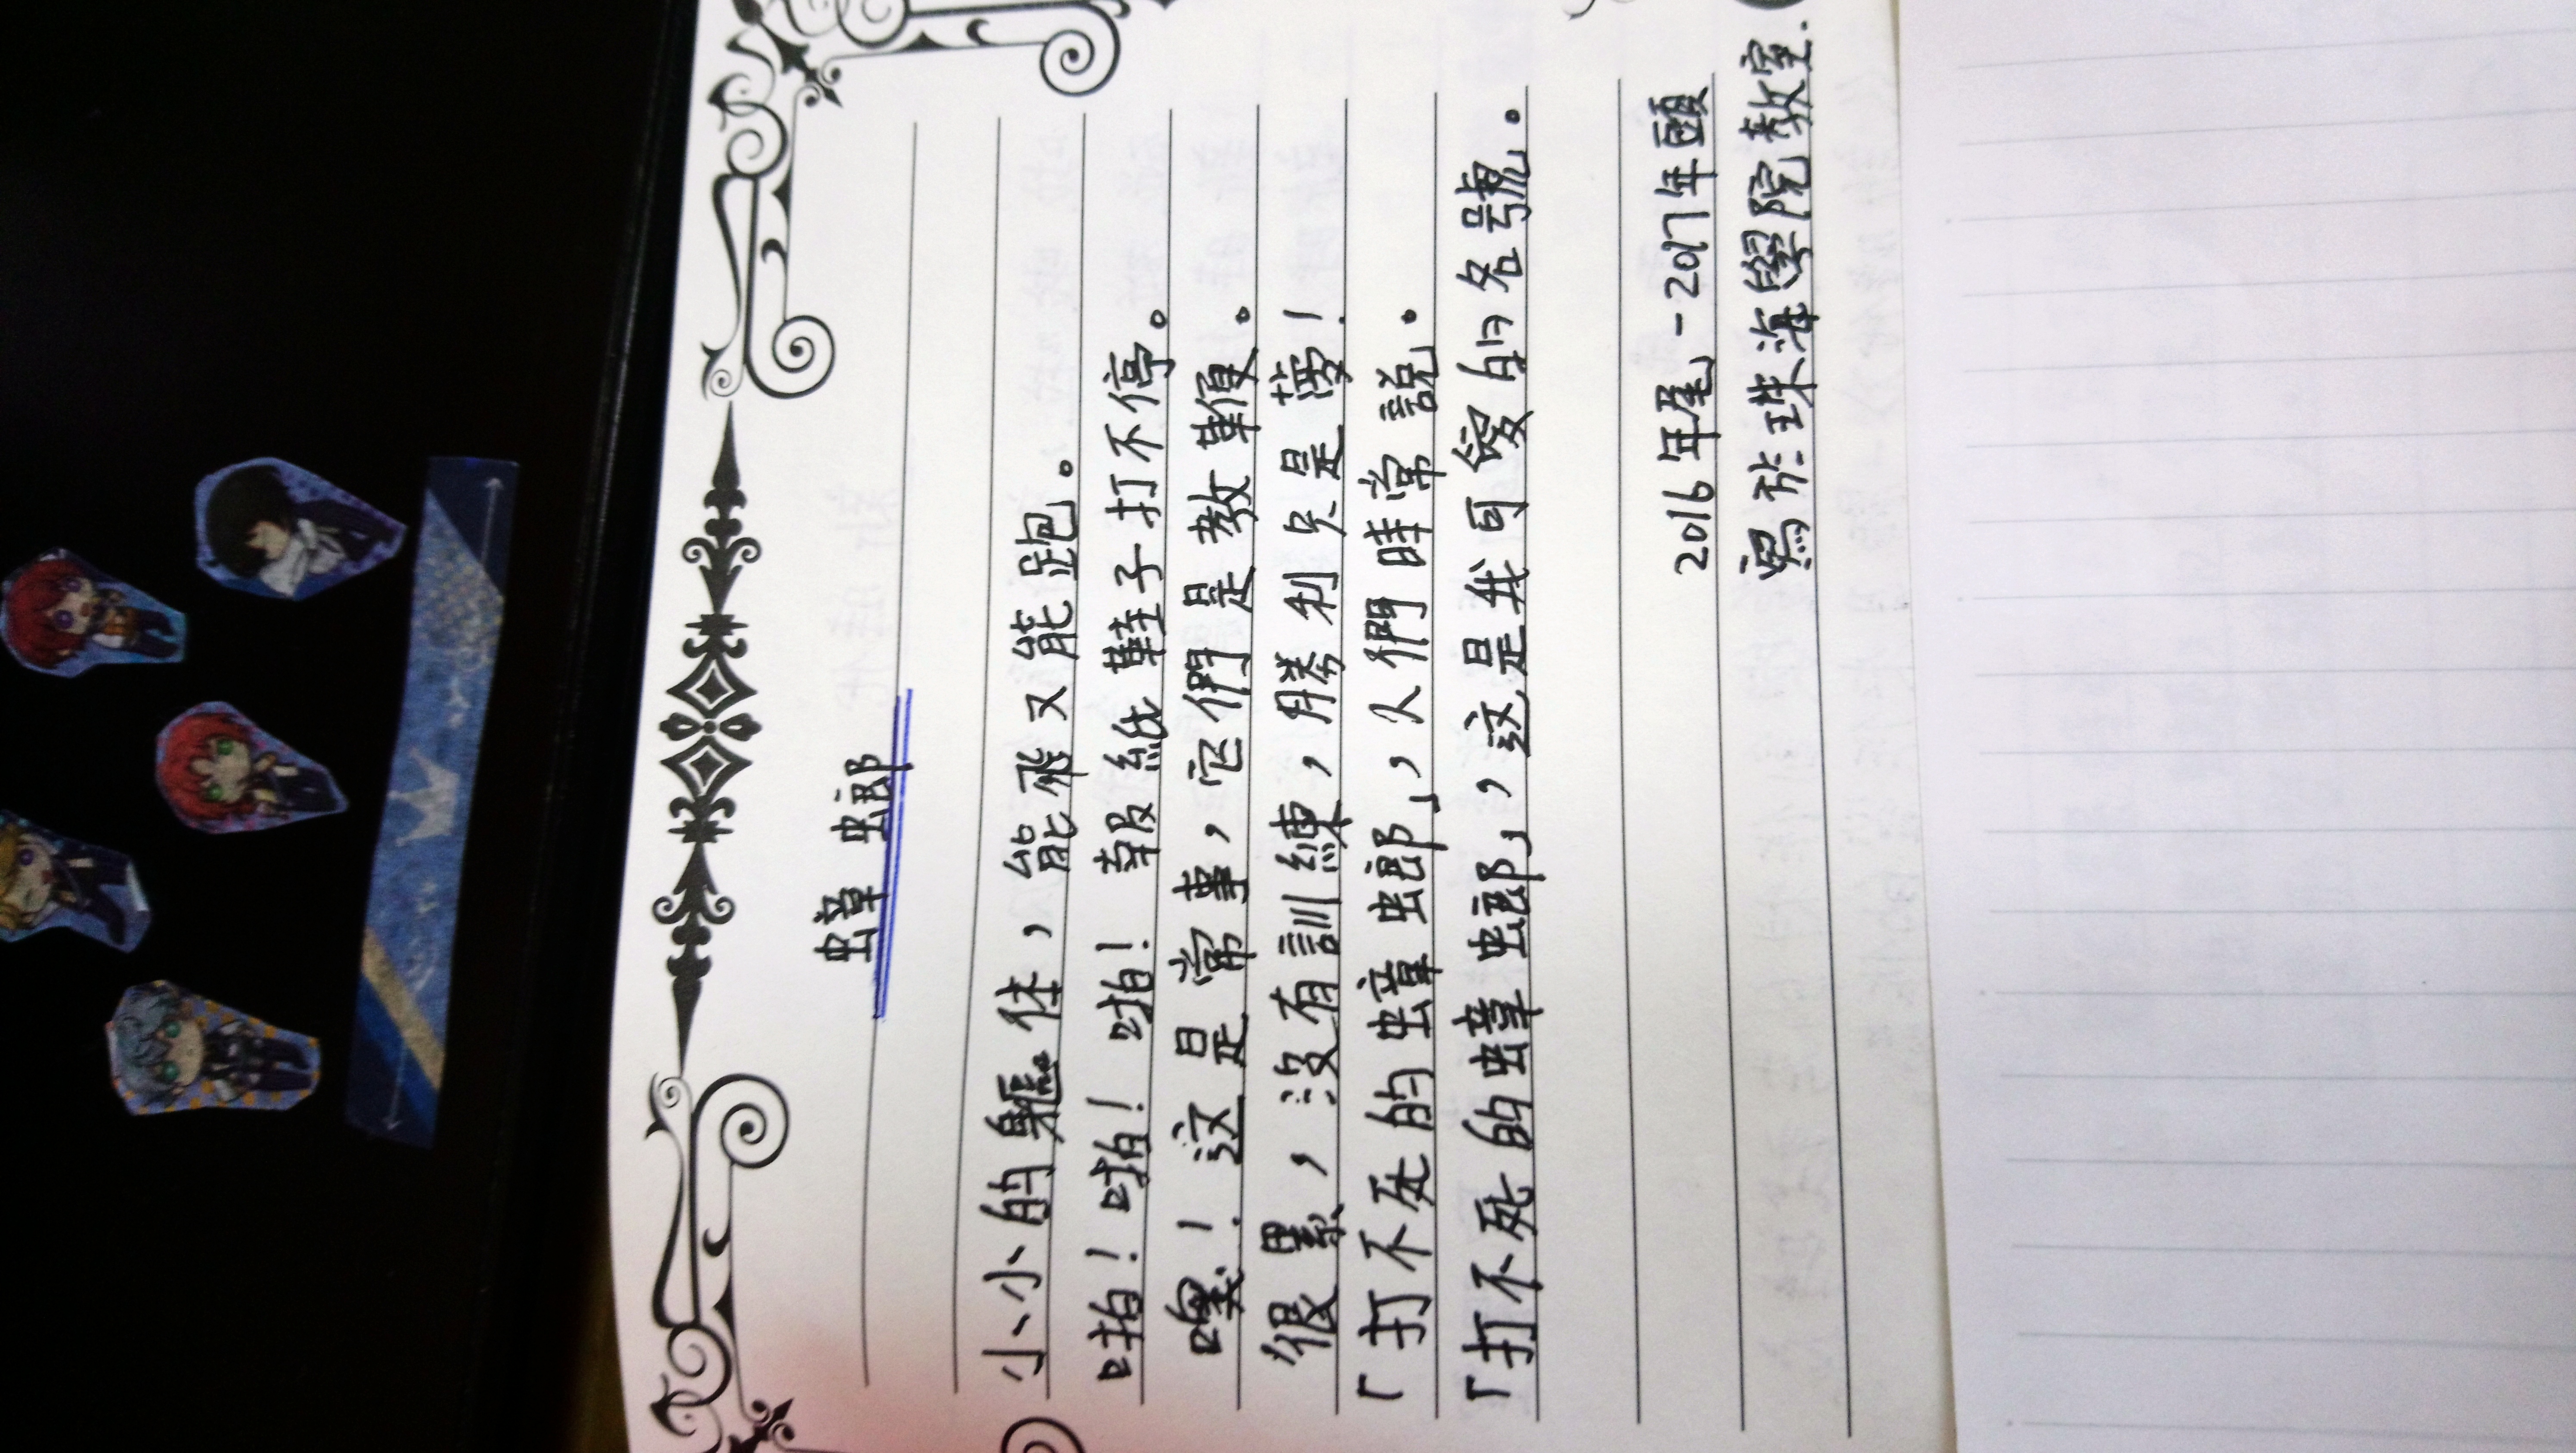 蟑螂
小小的軀体，能飛又能跑。
啪！啪！啪！報紙鞋子打不停。
噢！这是常事，它們是教鞭。
很累，沒有訓練，勝利只是夢！
「打不死的蟑螂」，人們時常說。
「打不死的蟑螂」，这是我可愛的名號。
2016年尾-2017年頭
寫於珠海學院教室.